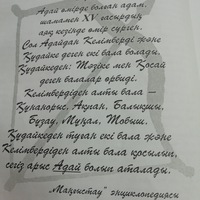 Адай өмірде болған адам,
шамамен XV ғасырдың
аяқ кезінде өмір сүрген.
Сол Адайдан Келімберді және
Құдайке деген екі бала болады.
Құдайкеден: Тәзіке мен Қосай
деген балалар өрбиді.
Келімбердіден алты бала —
Құнанорыс, Ақпан, Балықшы,
Бұзау, Мұңал, Тобыш.
Құдайкеден туған екі бала және
Келімбердіден алты бала қосылып,
сегіз арыс Адай болып аталады.
"Маңғыстау" энциклопедиясы